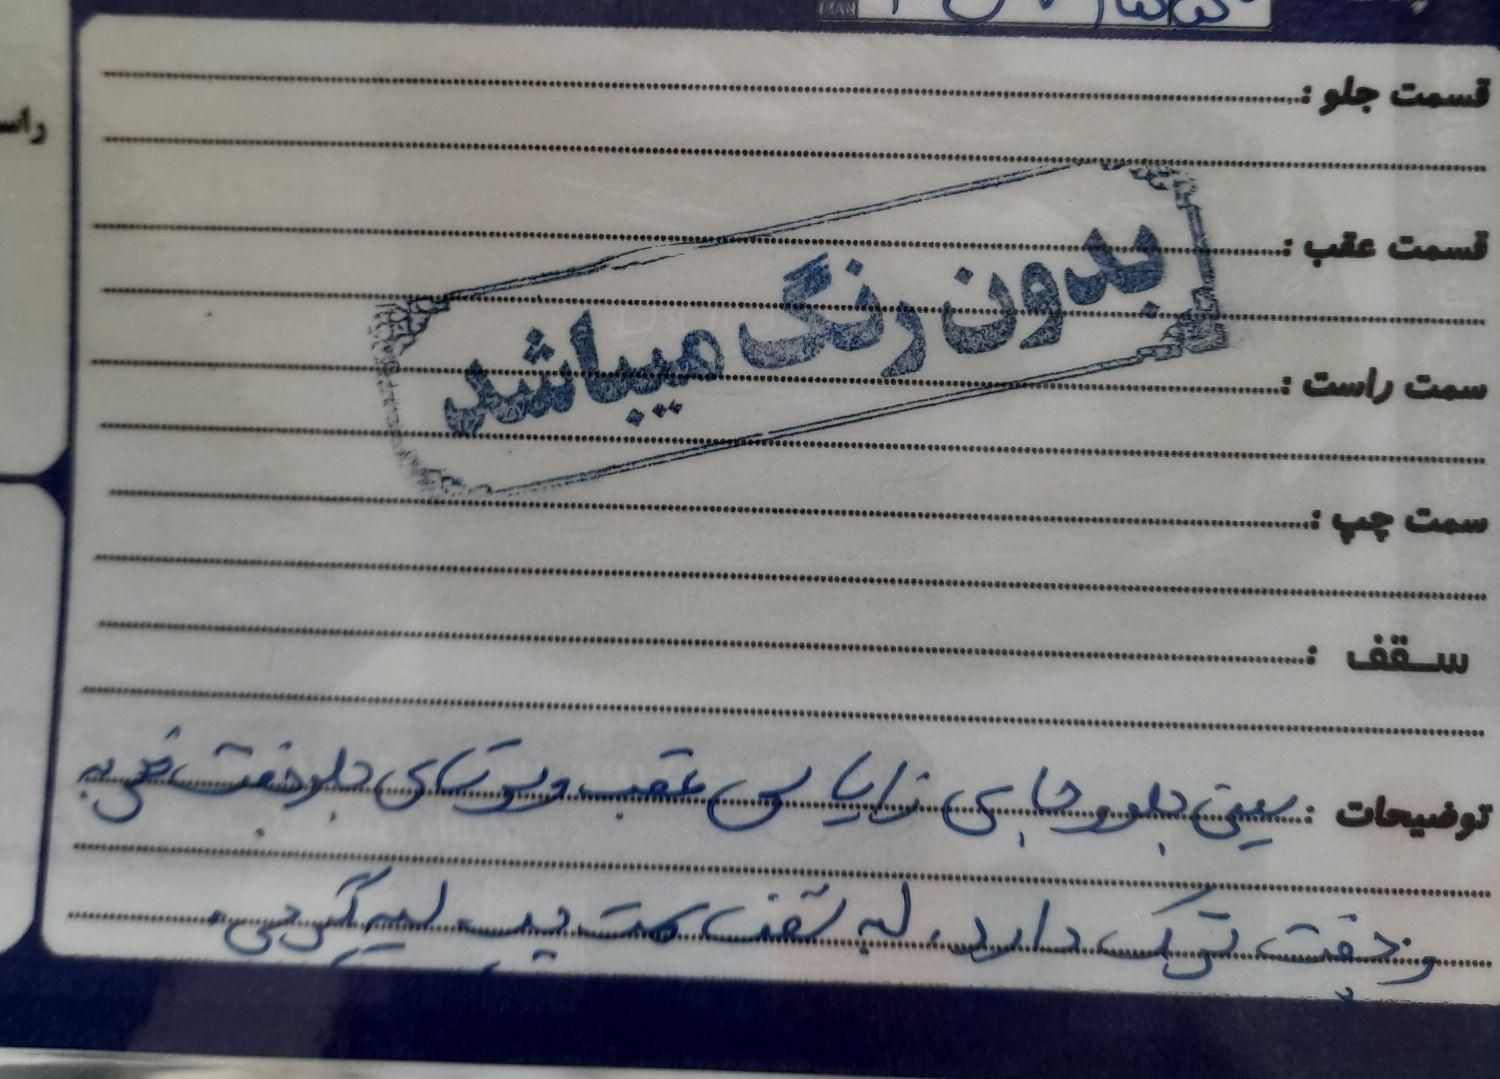 راس
قسمت جلو :
قسمت عقب :
بدون رنگ میباشد
سمت راست :
سمت چپ :
سقف :
توضیحات : سینی جلو و جای زاپاس عقب و ستای جلو جفت ضربه
و جفت ترک دارد. لبه سقف سمت چپ لیسه گیری.